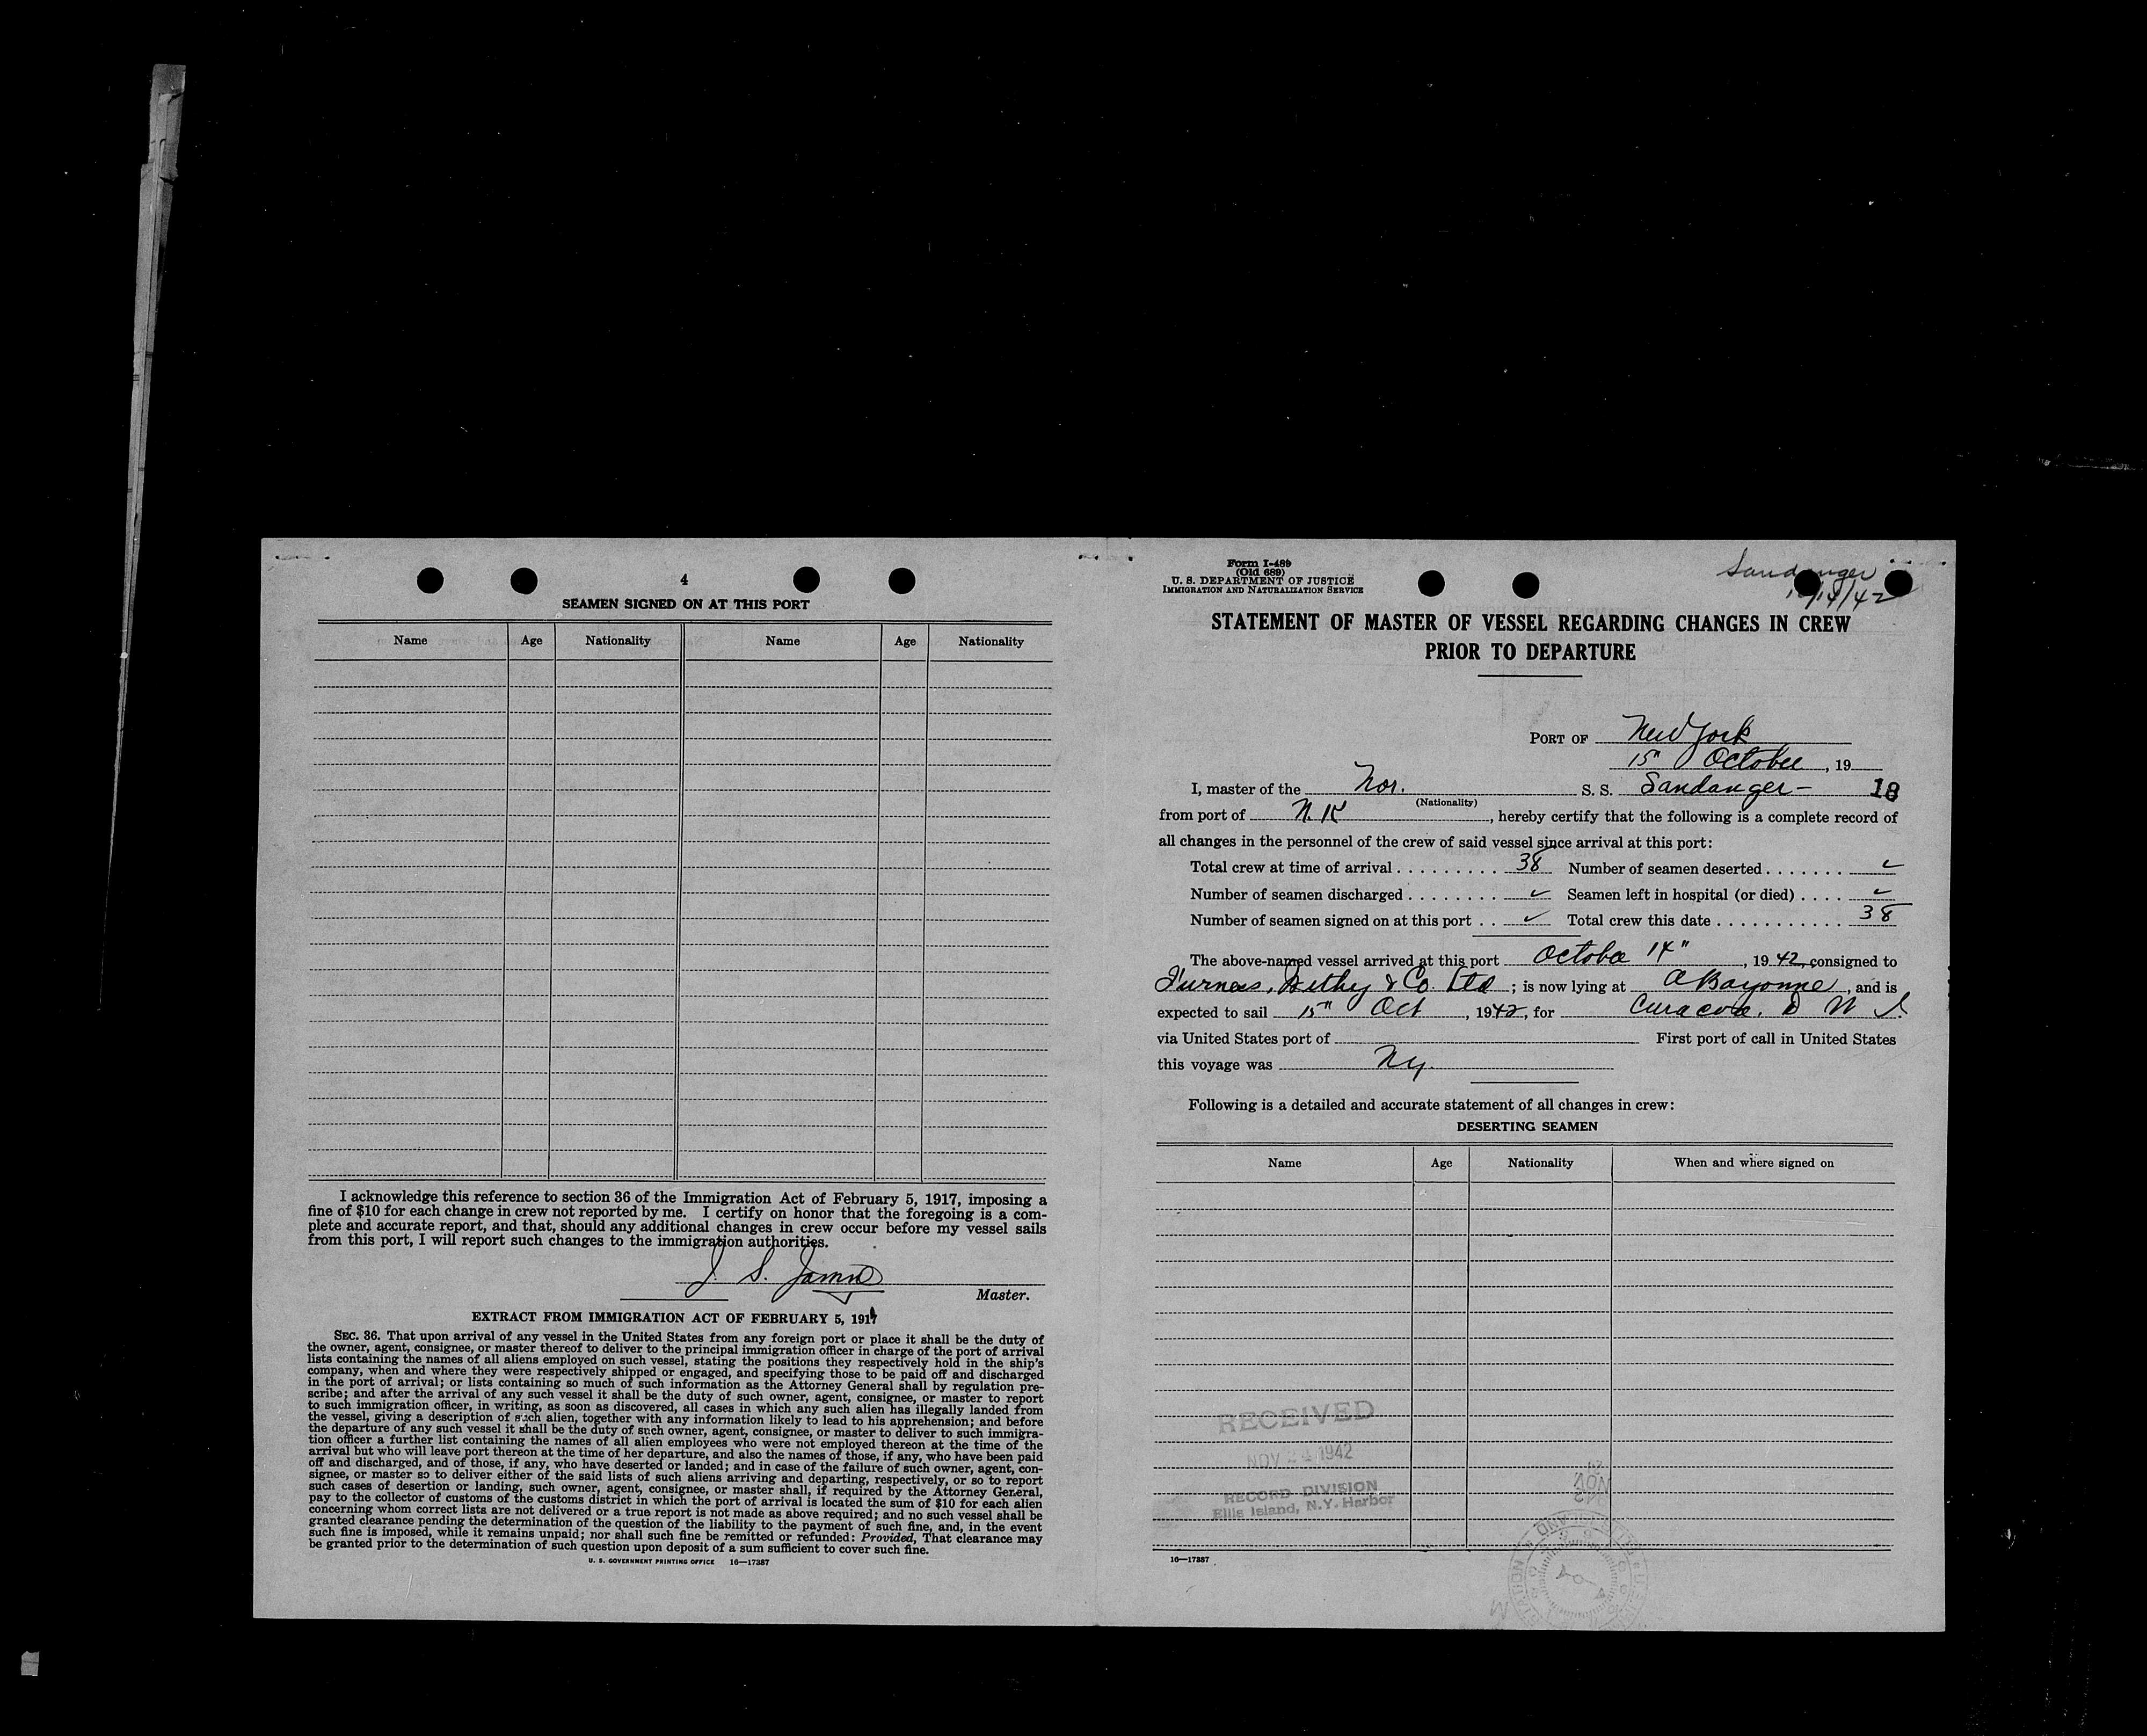 4
SEAMEN SIGNED ON AT THIS PORT
Name Age Nationality Name Age Nationality
I acknowledge this reference to section 36 of the Immigration Act of February 5, 1917, imposing a
fine of $10 for each change in crew not reported by me. I certify on honor that the foregoing is a com-
plete and accurate report, and that, should any additional changes in crew occur before my vessel sails
from this port, I will report such changes to the immigration authorities.
J. S.
Master.
EXTRACT FROM IMMIGRATION ACT OF FEBRUARY 5, 1917
SEC. 36. That upon arrival of any vessel in the United States from any foreign port or place it shall be the duty of
the owner, agent, consignee, or master thereof to deliver to the principal immigration officer in charge of the port of arrival
lists containing the names of all aliens employed on such vessel, stating the positions they respectively hold in the ship's
company, when and where they were respectively shipped or engaged, and specifying those to be paid off and discharged
in the port of arrival; or lists containing so much of such information as the Attorney General shall by regulation pre-
scribe; and after the arrival of any such vessel it shall be the duty of such owner, agent, consignee, or master to report
to such immigration officer, in writing, as soon as discovered, all cases in which any such alien has illegally landed from
the vessel, giving a description of such alien, together with any information likely to lead to his apprehension; and before
the departure of any such vessel it shall be the duty of such owner, agent, consignee, or master to deliver to such immigra-
tion officer a further list containing the names of all alien employees who were not employed thereon at the time of the
arrival but who will leave port thereon at the time of her departure, and also the names of those, if any, who have been paid
off and discharged, and of those, if any, who have deserted or landed; and in case of the failure of such owner, agent, con-
signee, or master so to deliver either of the said lists of such aliens arriving and departing, respectively, or so to report
such cases of desertion or landing, such owner, agent, consignee, or master shall, if required by the Attorney General,
pay to the collector of customs of the customs district in which the port of arrival is located the sum of $10 for each alien
concerning whom correct lists are not delivered or a true report is not made as above required; and no such vessel shall be
granted clearance pending the determination of the question of the liability to the payment of such fine, and, in the event
such fine is imposed, while it remains unpaid; nor shall such fine be remitted or refunded: Provided, That clearance may
be granted prior to the determination of such question upon deposit of a sum sufficient to cover such fine.
U. S. GOVERNMENT PRINTING OFFICE 16—17387
Form I-489
(Old 689)
U. S. DEPARTMENT OF JUSTICE
IMMIGRATION AND NATURALIZATION SERVICE
Sandanger
10/14/42
STATEMENT OF MASTER OF VESSEL REGARDING CHANGES IN CREW
PRIOR TO DEPARTURE
PORT OF New York
15" October, 19
I, master of the Nor. S. S. Sandanger - 18
(Nationality)
from port of N. K, hereby certify that the following is a complete record of
all changes in the personnel of the crew of said vessel since arrival at this port:
Total crew at time of arrival 38 Number of seamen deserted ✓
Number of seamen discharged ✓ Seamen left in hospital (or died) ✓
Number of seamen signed on at this port ✓ Total crew this date 38
The above-named vessel arrived at this port October 14", 1942, consigned to
Furness, Withy & Co. Ltd; is now lying at Bayonne, and is
expected to sail 15" Oct, 1942, for Curacoa. D W I.
via United States port of First port of call in United States
this voyage was Ny.
Following is a detailed and accurate statement of all changes in crew:
DESERTING SEAMEN
Name Age Nationality When and where signed on
RECEIVED
NOV 24 1942
RECORD DIVISION
Ellis Island, N.Y. Harbor
16—17387